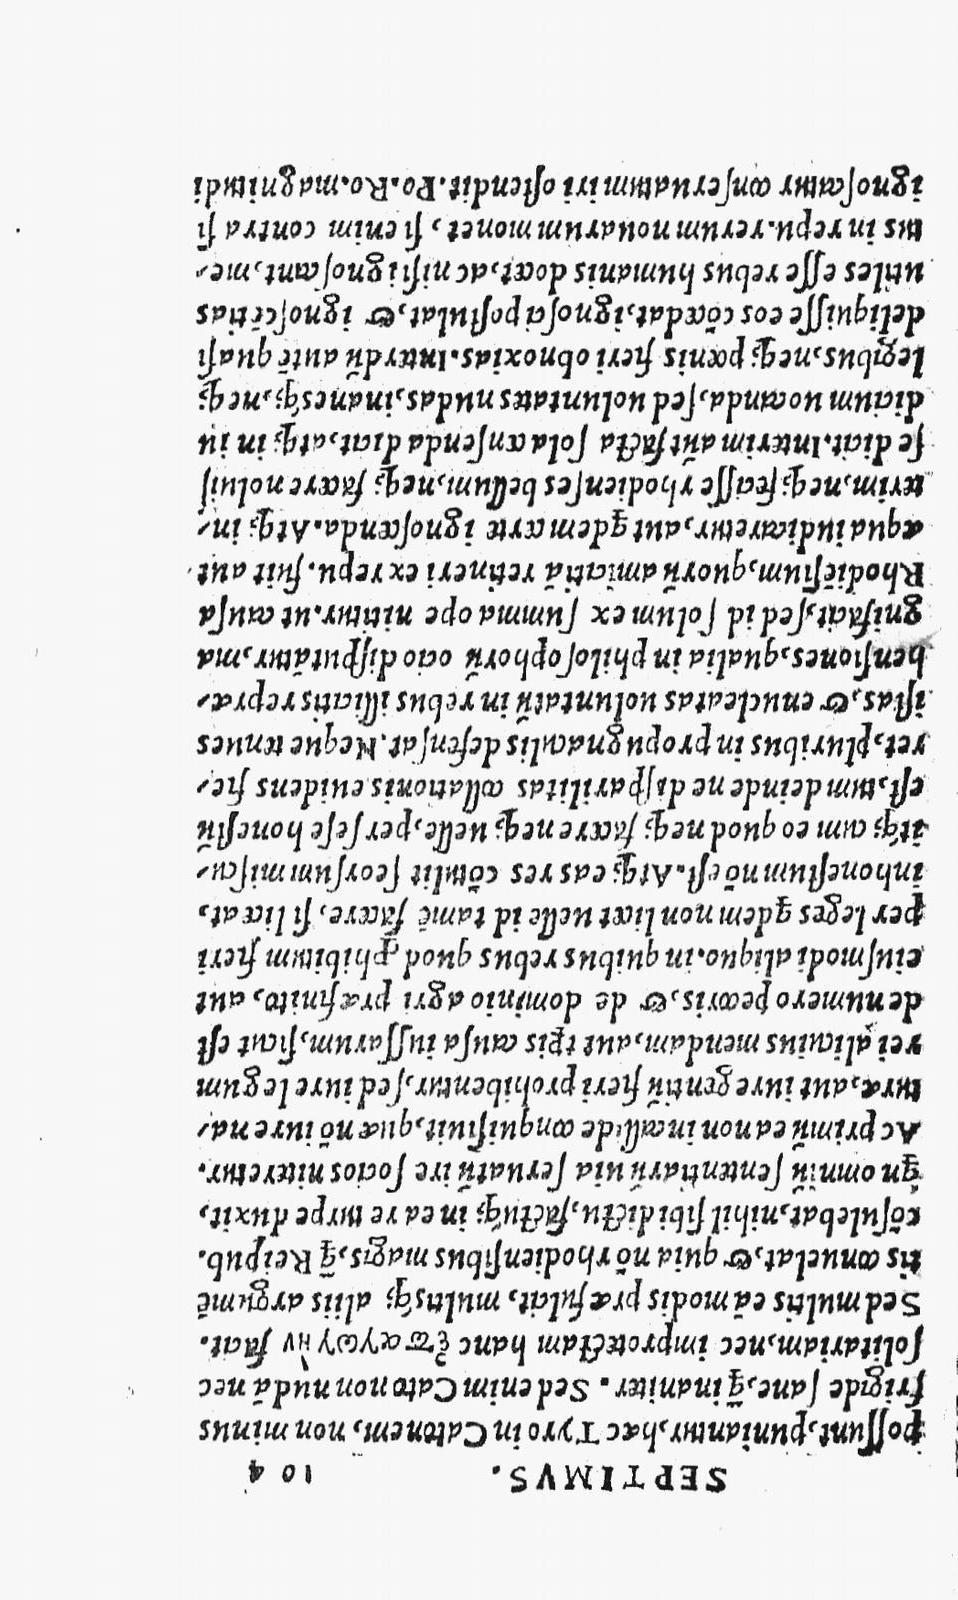 SEPTIMVS. 104
possunt, puniantur, hac Tyro in Catonem, non minus
frigide sane, q̃ inaniter. Sed enim Cato non nudã nec
solitariam, nec improtectam hanc ἐπαγωγὴν facit.
Sed multis eã modis præfulcit, multisq; aliis argumẽ
tis conuelat, & quia nõ rhodiensibus magis, q̃ Reipub.
cõsulebat, nihil sibi dictu, factúq; in ea re turpe duxit,
qn omniũ sententiarũ uia seruatũ ire socios niteretur.
Ac primũ ea non incallide conquisiuit, quæ nõ iure na-
turæ, aut iure gentiũ fieri prohibentur, sed iure legum
rei alicuius mendam, aut tp̃is causa iussarum, sicut est
de numero pecoris, & de dominio agri præfinito, aut
eiusmodi aliquo. in quibus rebus quod ꝓhibitum fieri
per leges qdem non licet uelle id tamẽ facere, si liceat,
inhonestum nõ est. Atq; eas res cõtulit seorsum miscu-
itq; cum eo quod neq; facere neq; uelle, per sese honestũ
est, tum deinde ne disparilitas collationis euidens fie-
ret, pluribus in propugnaculis defensat. Neque tenues
istas, & enucleatas uoluntatũ in rebus illicitis repræ-
hensiones, qualia in philosophorũ ocio disputãtur, ma
gnifacit, sed id solum ex summa ope nititur. ut causa
Rhodiẽsium, quorũ amicitiã retineri ex repu. fuit aut
æqua iudicaretur, aut qdem certe ignoscenda. Atq; in-
terim, neq; fecisse rhodienses bellum, neq; facere noluis
se dicit. Interim aũt facta sola censenda dicit, atq; in iu
dicium uocanda, sed uoluntates nudas, inanesq;, neq;
legibus, neq; pœnis fieri obnoxias. Interdũ autẽ quasi
deliquisse eos cõcedat, ignosci postulat, & ignoscẽtias
utiles esse rebus humanis docet, ac nisi ignoscant, me-
tus in repu. rerum nouarum mouet, si enim contra si
ignoscatur conseruatum iri ostendit. Po. Ro. magnitudi